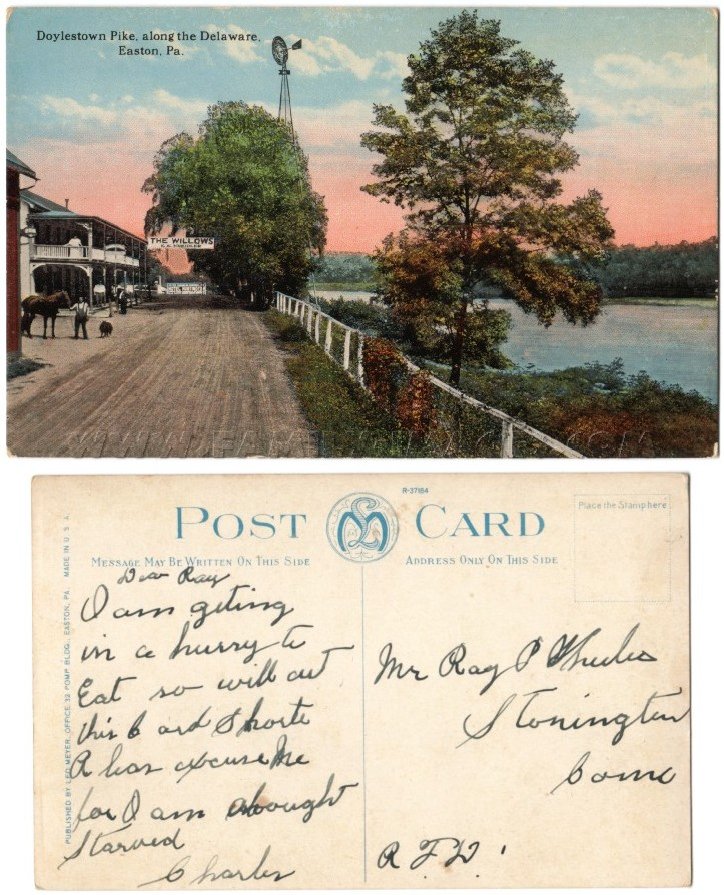 Doylestown Pike, along the Delaware,
Easton, Pa.
THE WILLOWS
R-37184
POST CARD
MESSAGE MAY BE WRITTEN ON THIS SIDE
ADDRESS ONLY ON THIS SIDE
Place the Stamp here
MADE IN U. S. A.
PUBLISHED BY LEO MEYER, OFFICE 32 POMP BLDG., EASTON, PA.
Dear Ray
I am geting
in a hurry to
Eat so will cut
this Card Shorte
A han excuse Me
for I am abought
Starved
Charles
Mr Ray P
Stonington
Conn
R F D.